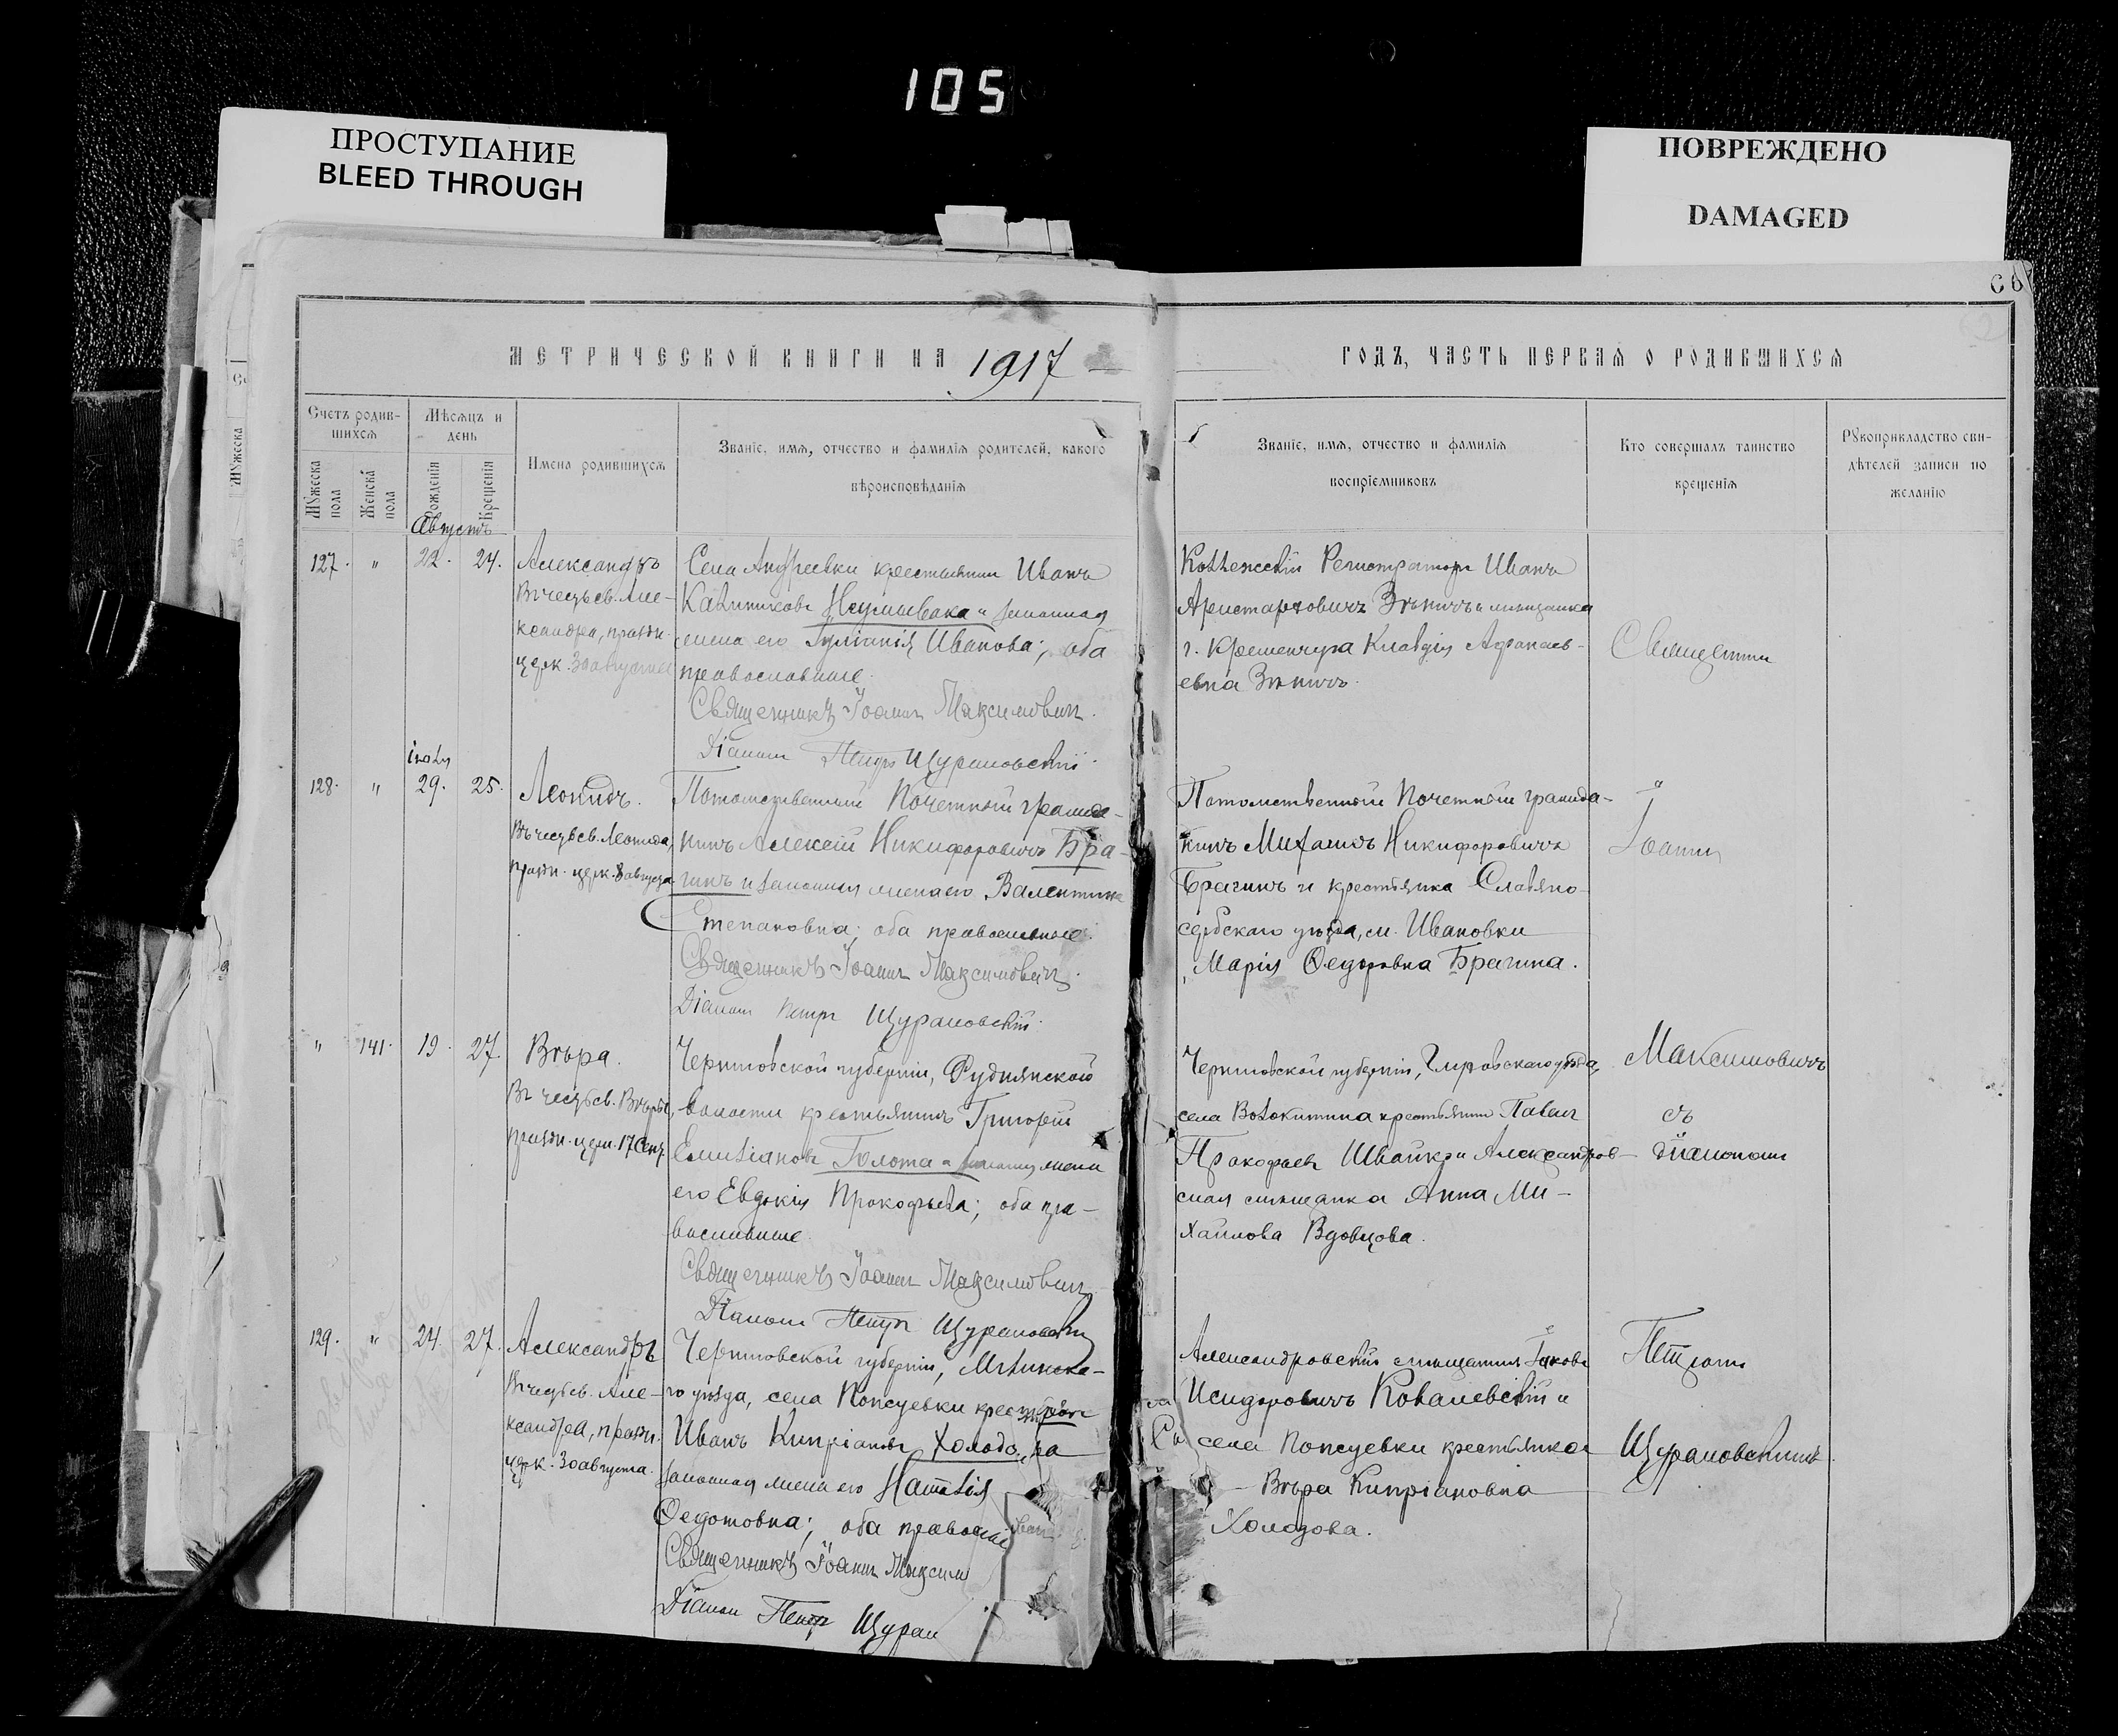 105
ПРОСТУПАНИЕ
BLEED THROUGH
ПОВРЕЖДЕНО
DAMAGED
МЕТРИЧЕСКОЙ КНИГИ НА 1917
ГОДЪ, ЧАСТЬ ПЕРВАЯ О РОДИВШИХСЯ
Счетъ родив-
шихся
Мѣсяцъ и
день
Мужеска пола
Женска пола
Рожденія
Крещенія
Имена родившихся
Званіе, имя, отчество и фамилія родителей, какого
вѣроисповѣданія
Званіе, имя, отчество и фамилія
воспріемниковъ
Кто совершалъ таинство
крещенія
Рукоприкладство сви-
дѣтелей записи по
желанію
Августъ
127. " 22. 24. Александръ
Въ честь св. Але-
ксандра, праздн.
церк. 30 августа
Села Андреевки крестьянинъ Иванъ
законная
жена его Іуліанія Иванова; оба
православные.
Священникъ Іоаннъ Максимовичъ.
Діаконъ Петръ Щурановскій.
Коллежскій Регистраторъ Иванъ
Аристарховичъ Зѣничъ и мѣщанка
г. Кременчуга Клавдія Афанась-
евна Зѣничъ.
Священникъ
іюля
128. " 29. 25. Леонидъ.
Въ честь св. Леонида,
праздн. церк. 8 августа.
Потомственный Почетный гражда-
нинъ Алексѣй Никифоровичъ Бра-
гинъ и законная жена его Валентина
Степановна; оба православные.
Священникъ Іоаннъ Максимовичъ.
Діаконъ Петръ Щурановскій.
Потомственный Почетный гражда-
нинъ Михаилъ Никифоровичъ
Брагинъ и крестьянка Славяно-
сербскаго уѣзда, с. Ивановки
Марія Ѳедоровна Брагина.
Іоаннъ
" 141. 19. 27. Вѣра.
Въ честь св. Вѣры,
праздн. церк. 17 Сент.
Черниговской губерніи, Руднянской
волости крестьянинъ Григорій
Емиліановъ Болота и законная жена
его Евдокія Прокофьева; оба пра-
вославные.
Священникъ Іоаннъ Максимовичъ
Діаконъ Петръ Щурановскій
Черниговской губерніи, Глуховскаго уѣзда,
села Волокитина крестьянинъ Павелъ
Прокофьевъ Швайко и Александров-
ская мѣщанка Анна Ми-
хайлова Вдовцова.
Максимовичъ
съ
діакономъ
129. " 24. 27. Александръ
Въ честь св. Але-
ксандра, праздн.
церк. 30 августа.
Черниговской губерніи, Мглинска-
го уѣзда, села Попсуевки
Иванъ Кипріановъ
законная жена его Наталія
Ѳедотовна; оба правосла
Священникъ Іоаннъ Максим
Діаконъ Петръ Щуран
Александровскій мѣщанинъ Іаковъ
Исидоровичъ Ковалевскій и
села Попсуевки крестьянка
Вѣра Кипріановна
Холодова.
Петромъ
Щурановскимъ.